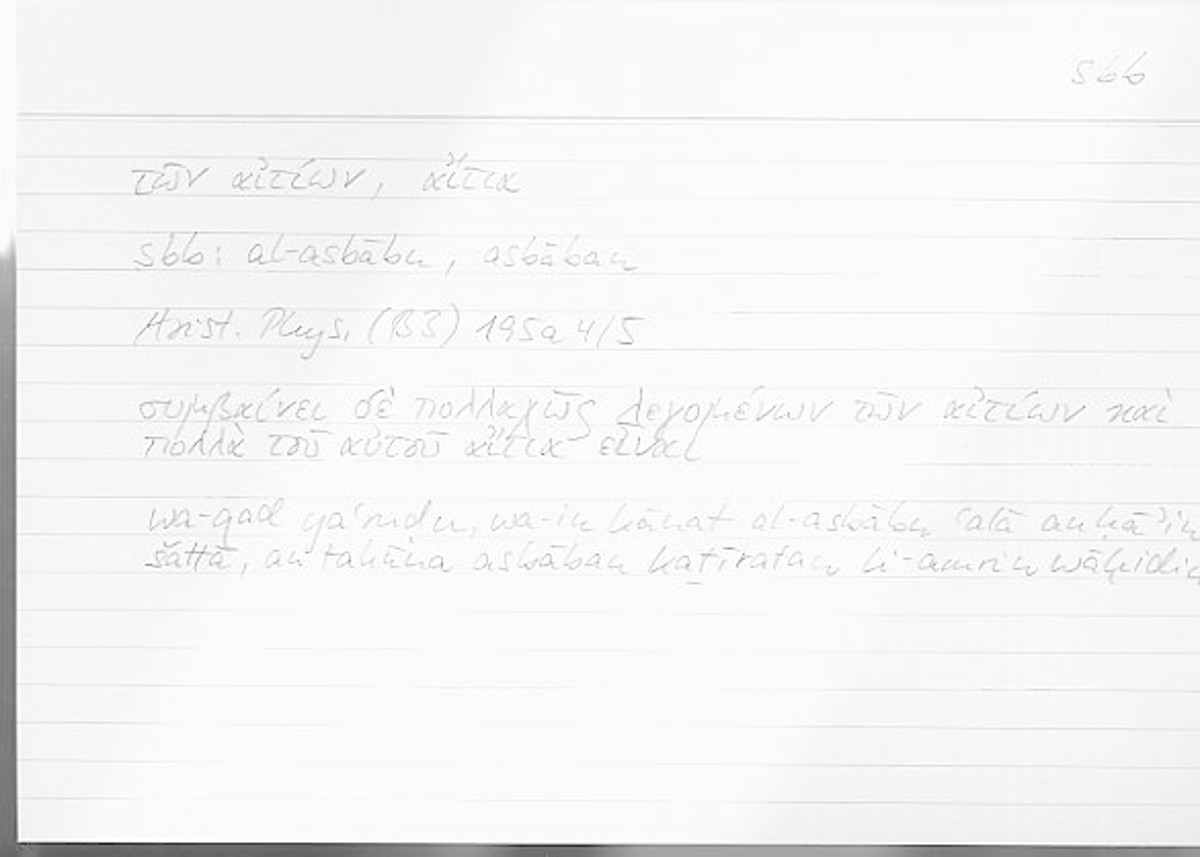 sbb
τῶν αἰτίων, αἴτια
sbb: al-asbābu, asbāban
Arist. Phys. (B3) 195a 4/5
συμβαίνει δὲ πολλαχῶς λεγομένων τῶν αἰτίων καὶ
πολλὰ τοῦ αὐτοῦ αἴτια εἶναι
wa-qad yaʿriḍu, wa-in kānat al-asbābu ʿalā anḥāʾin
šattā, an takūna asbāban kaṯīratan li-amrin wāḥidin